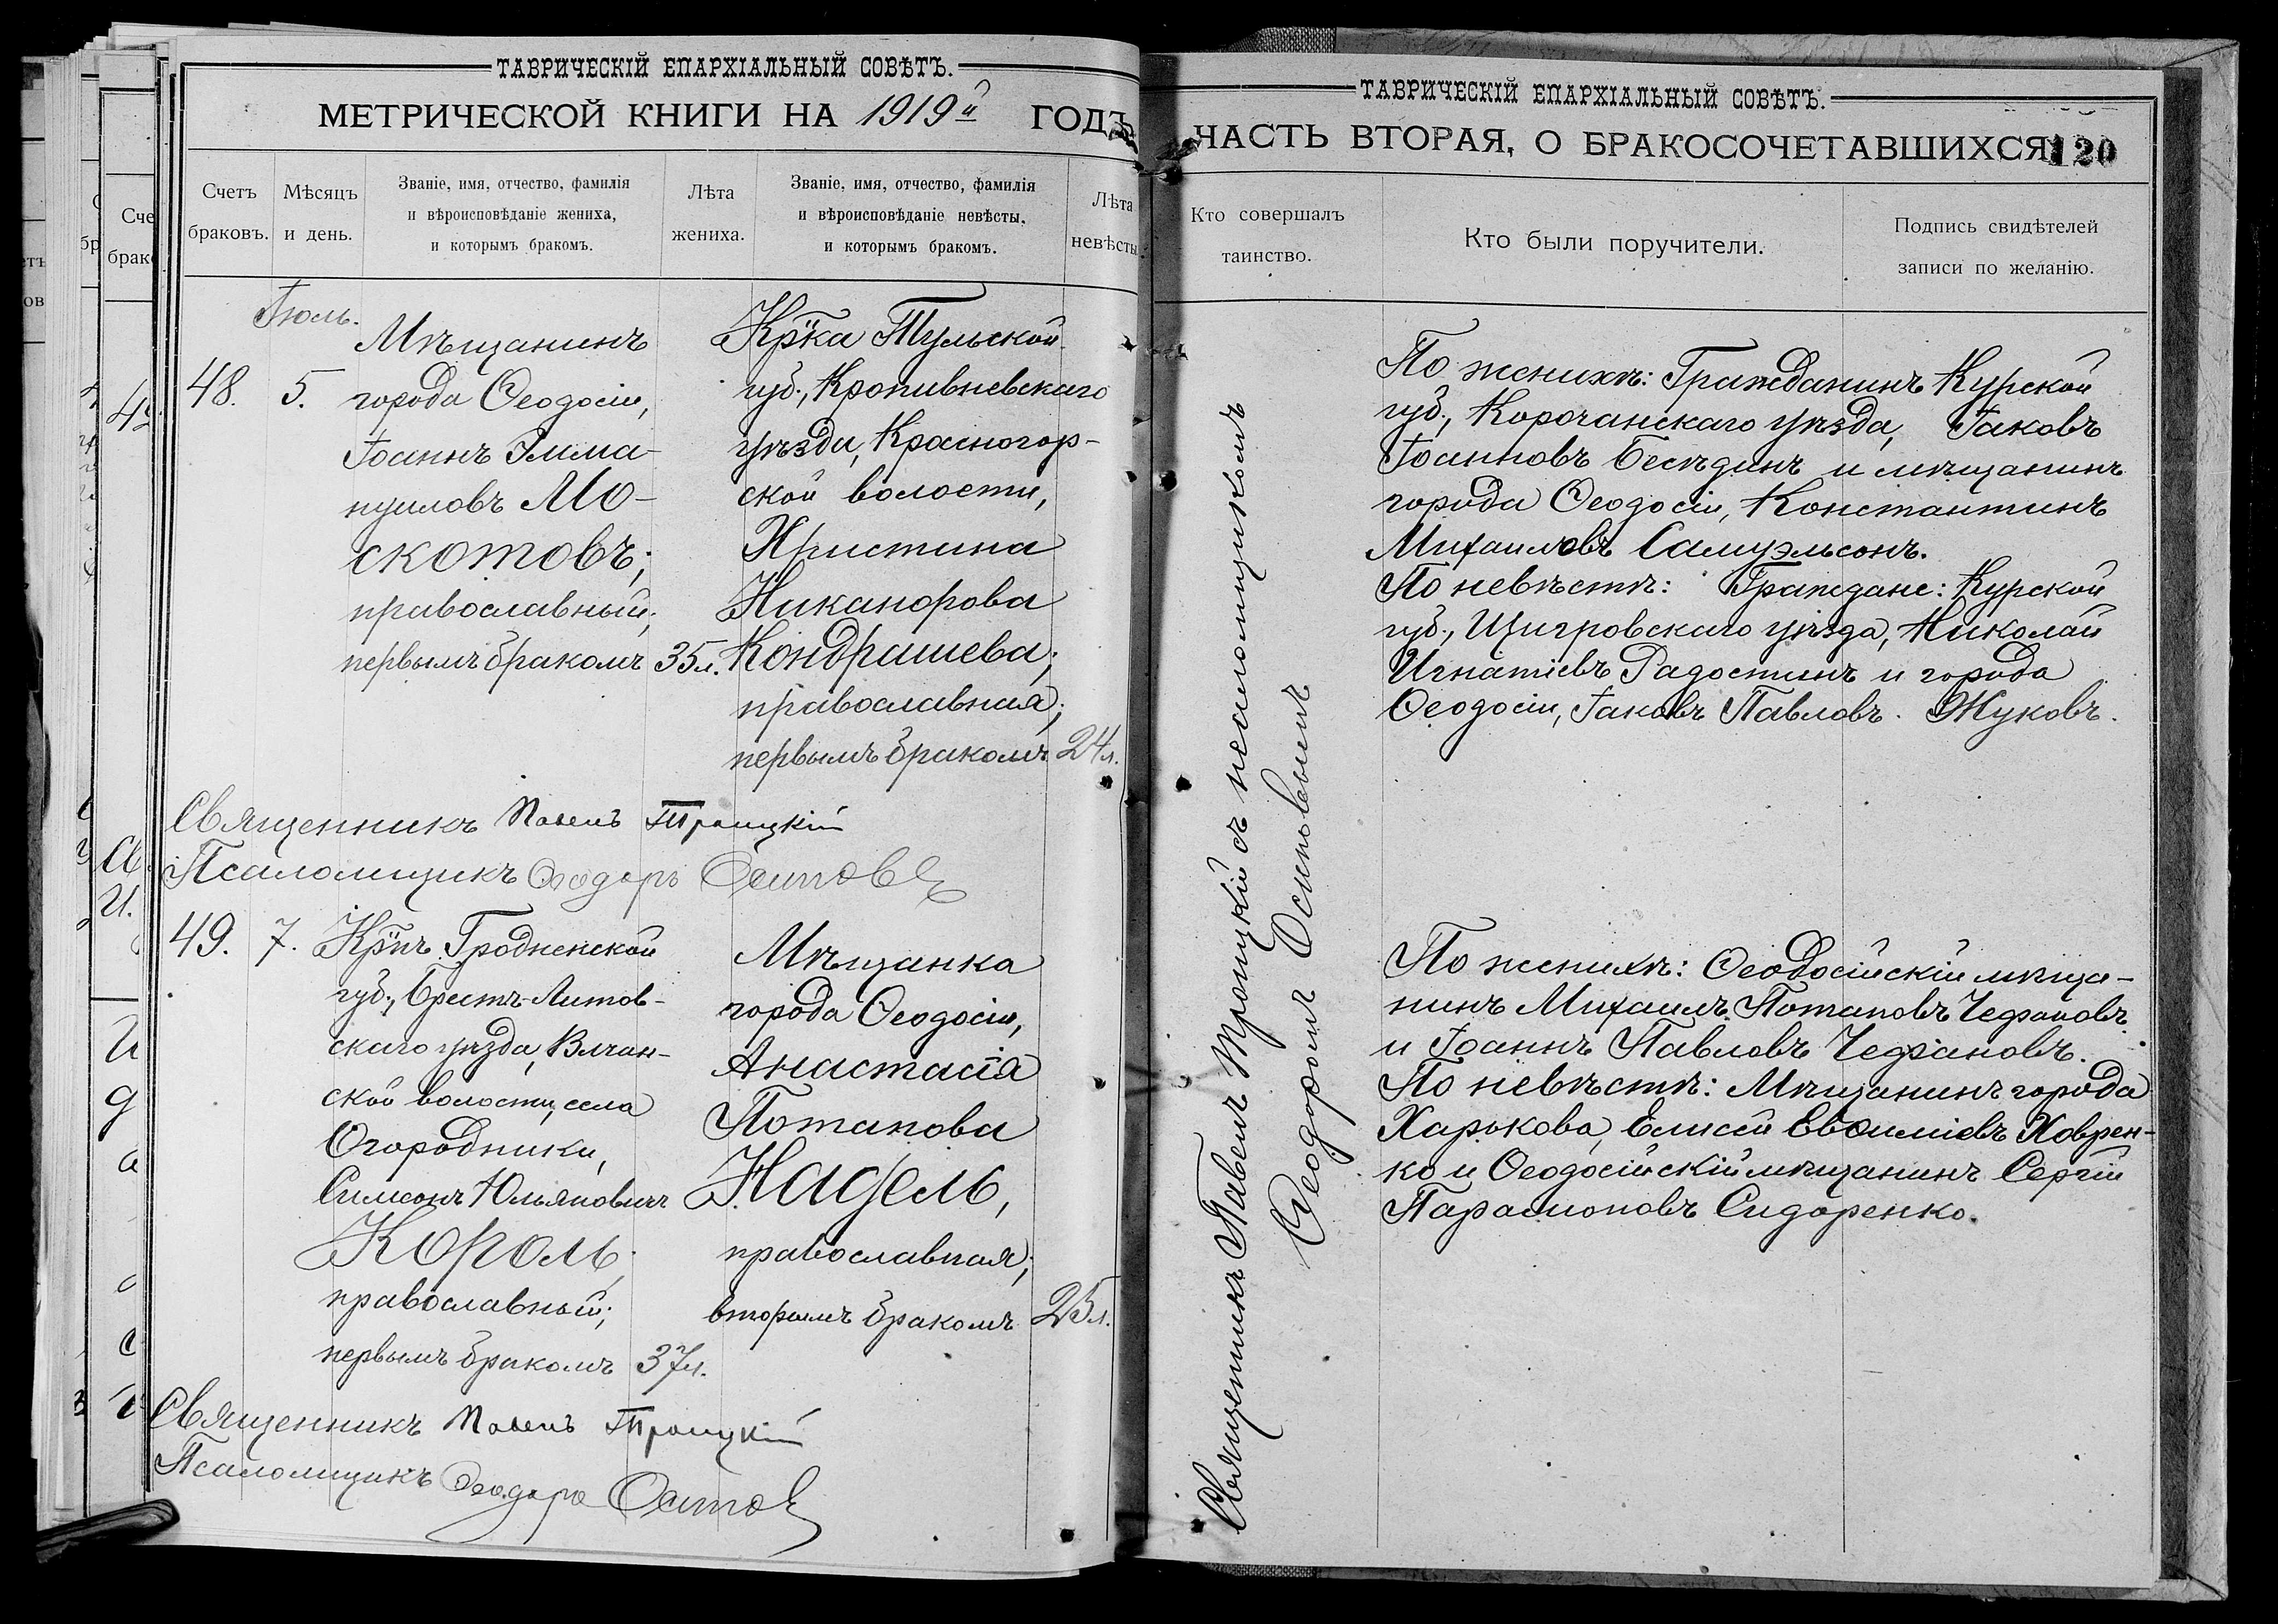 ТАВРИЧЕСКІЙ ЕПАРХІАЛЬНЫЙ СОВѢТЪ.
МЕТРИЧЕСКОЙ КНИГИ НА 1919й ГОДЪ
Счетъ браковъ.
Мѣсяцъ и день.
Званіе, имя, отчество, фамилія
и вѣроисповѣданіе жениха,
и которымъ бракомъ.
Лѣта жениха.
Званіе, имя, отчество, фамилія
и вѣроисповѣданіе невѣсты,
и которымъ бракомъ.
Лѣта невѣсты
Іюль.
48.
5.
Мѣщанинъ
города Ѳеодосіи,
Іоаннъ Эмма-
нуиловъ Мо-
скотовъ;
православный;
первымъ бракомъ
35л.
Кр̃ка Тульской
губ., Кропивневскаго
уѣзда, Красногор-
ской волости,
Христина
Никанорова
Кондрашева;
православная;
первымъ бракомъ
24л.
Священникъ Павелъ Троицкій
Псаломщикъ Ѳеодоръ Осиповъ
49.
7.
Кр̃нъ Гродненской
губ., Брестъ-Литов-
скаго уѣзда, Влчан-
ской волости, села
Огородники,
Симеонъ Юльяновичъ
Король,
православный;
первымъ бракомъ
37л.
Мѣщанка
города Ѳеодосіи,
Анастасія
Потапова
Надель,
православная;
вторымъ бракомъ
25л.
Священникъ Павелъ Троицкій
Псаломщикъ Ѳеодоръ Осиповъ
ТАВРИЧЕСКІЙ ЕПАРХІАЛЬНЫЙ СОВѢТЪ.
ЧАСТЬ ВТОРАЯ, О БРАКОСОЧЕТАВШИХСЯ
120
Кто совершалъ
таинство.
Кто были поручители.
Подпись свидѣтелей
записи по желанію.
Священникъ Павелъ Троицкій съ псаломщикомъ
Ѳеодоромъ Осиповымъ
По женихѣ: Гражданинъ Курской
губ., Корочанскаго уѣзда, Іаковъ
Іоанновъ Бесѣдинъ и мѣщанинъ
города Ѳеодосіи, Константинъ
Михаиловъ Самуэльсонъ.
По невѣстѣ: Граждане: Курской
губ., Щигровскаго уѣзда, Николай
Игнатіевъ Радостинъ и города
Ѳеодосіи, Іаковъ Павловъ Жуковъ.
По женихѣ: Ѳеодосійскій мѣща-
нинъ Михаилъ Потаповъ Чефановъ
и Іоаннъ Павловъ Чефановъ.
По невѣстѣ: Мѣщанинъ города
Харькова, Елисей Евѳиміевъ Ховрен-
ко и Ѳеодосійскій мѣщанинъ Сергій
Парамоновъ Сидоренко.